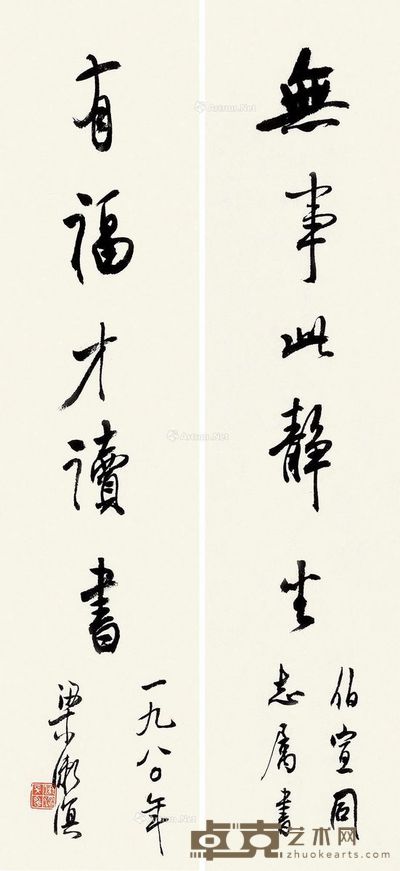 無事此靜坐
伯宣同
志屬書
有福才讀書
一九八〇年
梁漱溟
Artron.Net
Artron.Net
Artron.Net
Artron.Net
卓克艺术网
zhuokearts.com